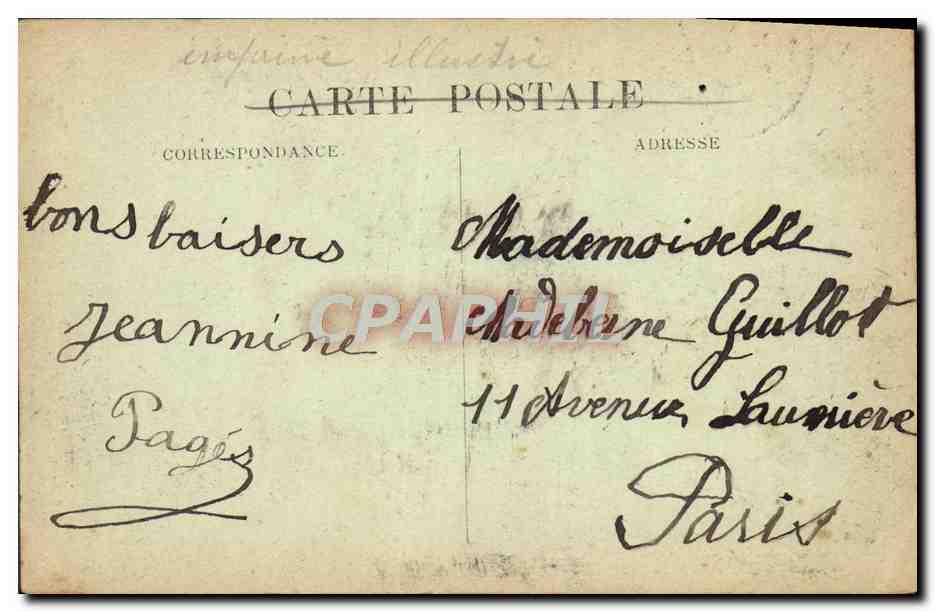 imprimé illustré
CARTE POSTALE
CORRESPONDANCE
ADRESSE
bons baisers
Jeannine
Pagés
Mademoiselle
Guillot
11 Avenue Laumière
Paris
CPAPHIL